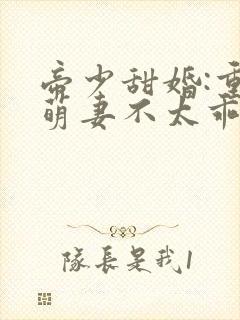 帝少甜婚:重
萌妻不太乖
隊長是我1